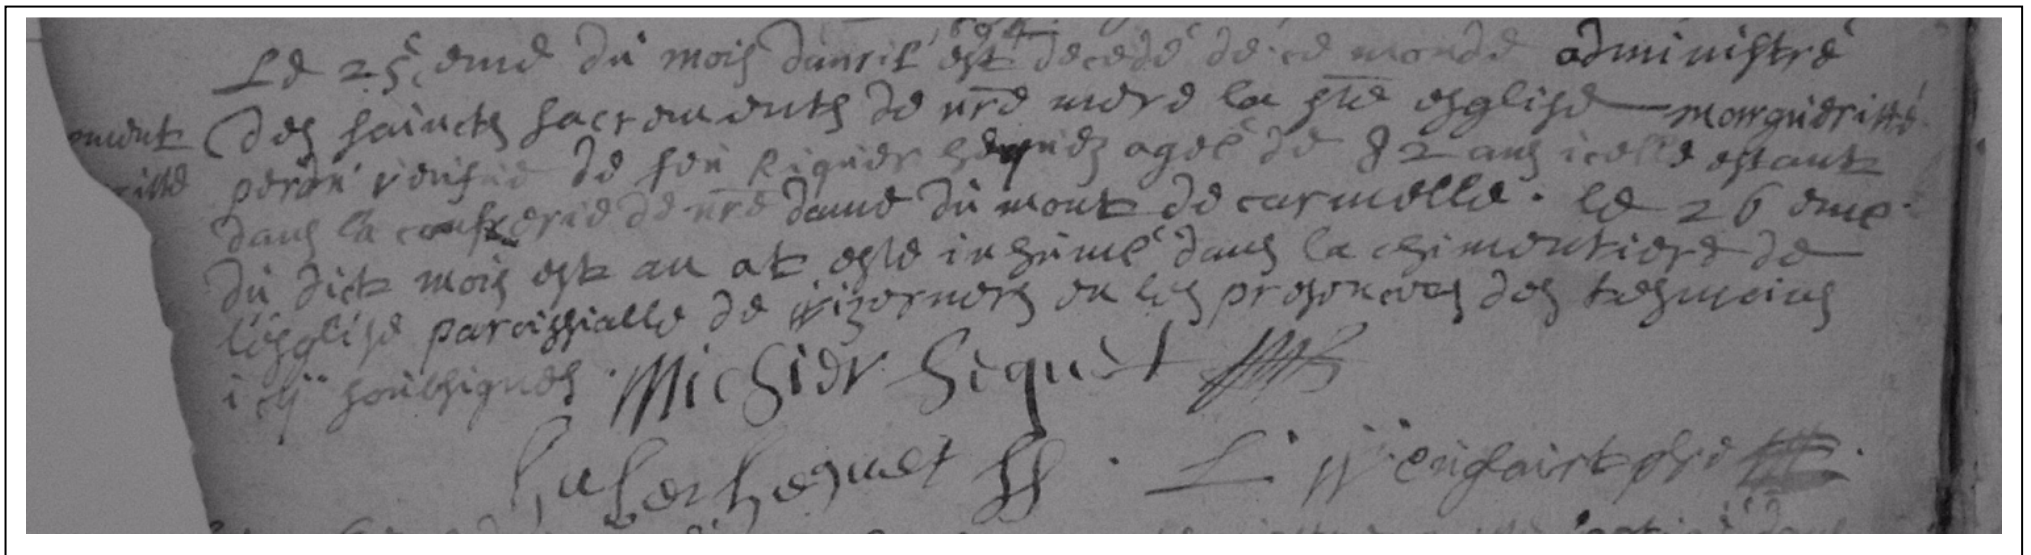 1694
Le 25 eme du mois d'auril est decedé de ce monde administré
des saincts sacrements de nre mere la ste esglise margueritte
peron veufue de feu Riquier hequet agee de 82 ans icelle estant
dans la confrerie de nre dame du mont de carmelle . le 26 eme
du dict mois est an at esté inhumé dans la chimentiere de
l'esglise paroissialle de wizernes en les presences des tesmoins
icy soubsignes . Michier hequet
huber hequet L. W.